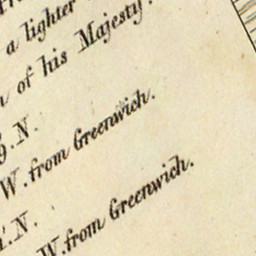 a lighter
of his Majesty
N.
W. from Greenwich.
N.
W. from Greenwich.